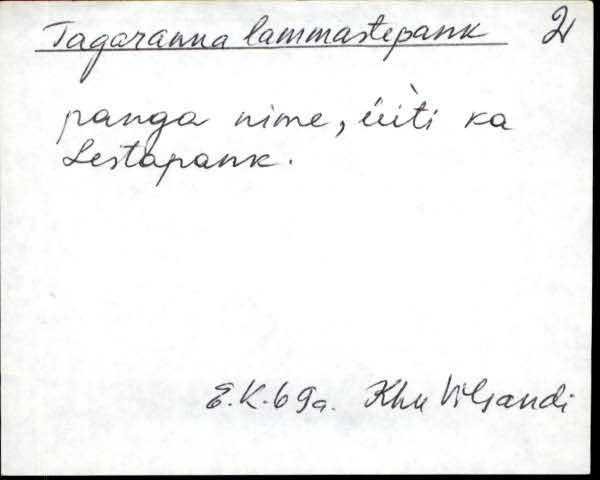 Tagaranna lammastepank 21
panga nime, üiti ka
Lestapank.
E.K. 69a. Khu Vilsandi